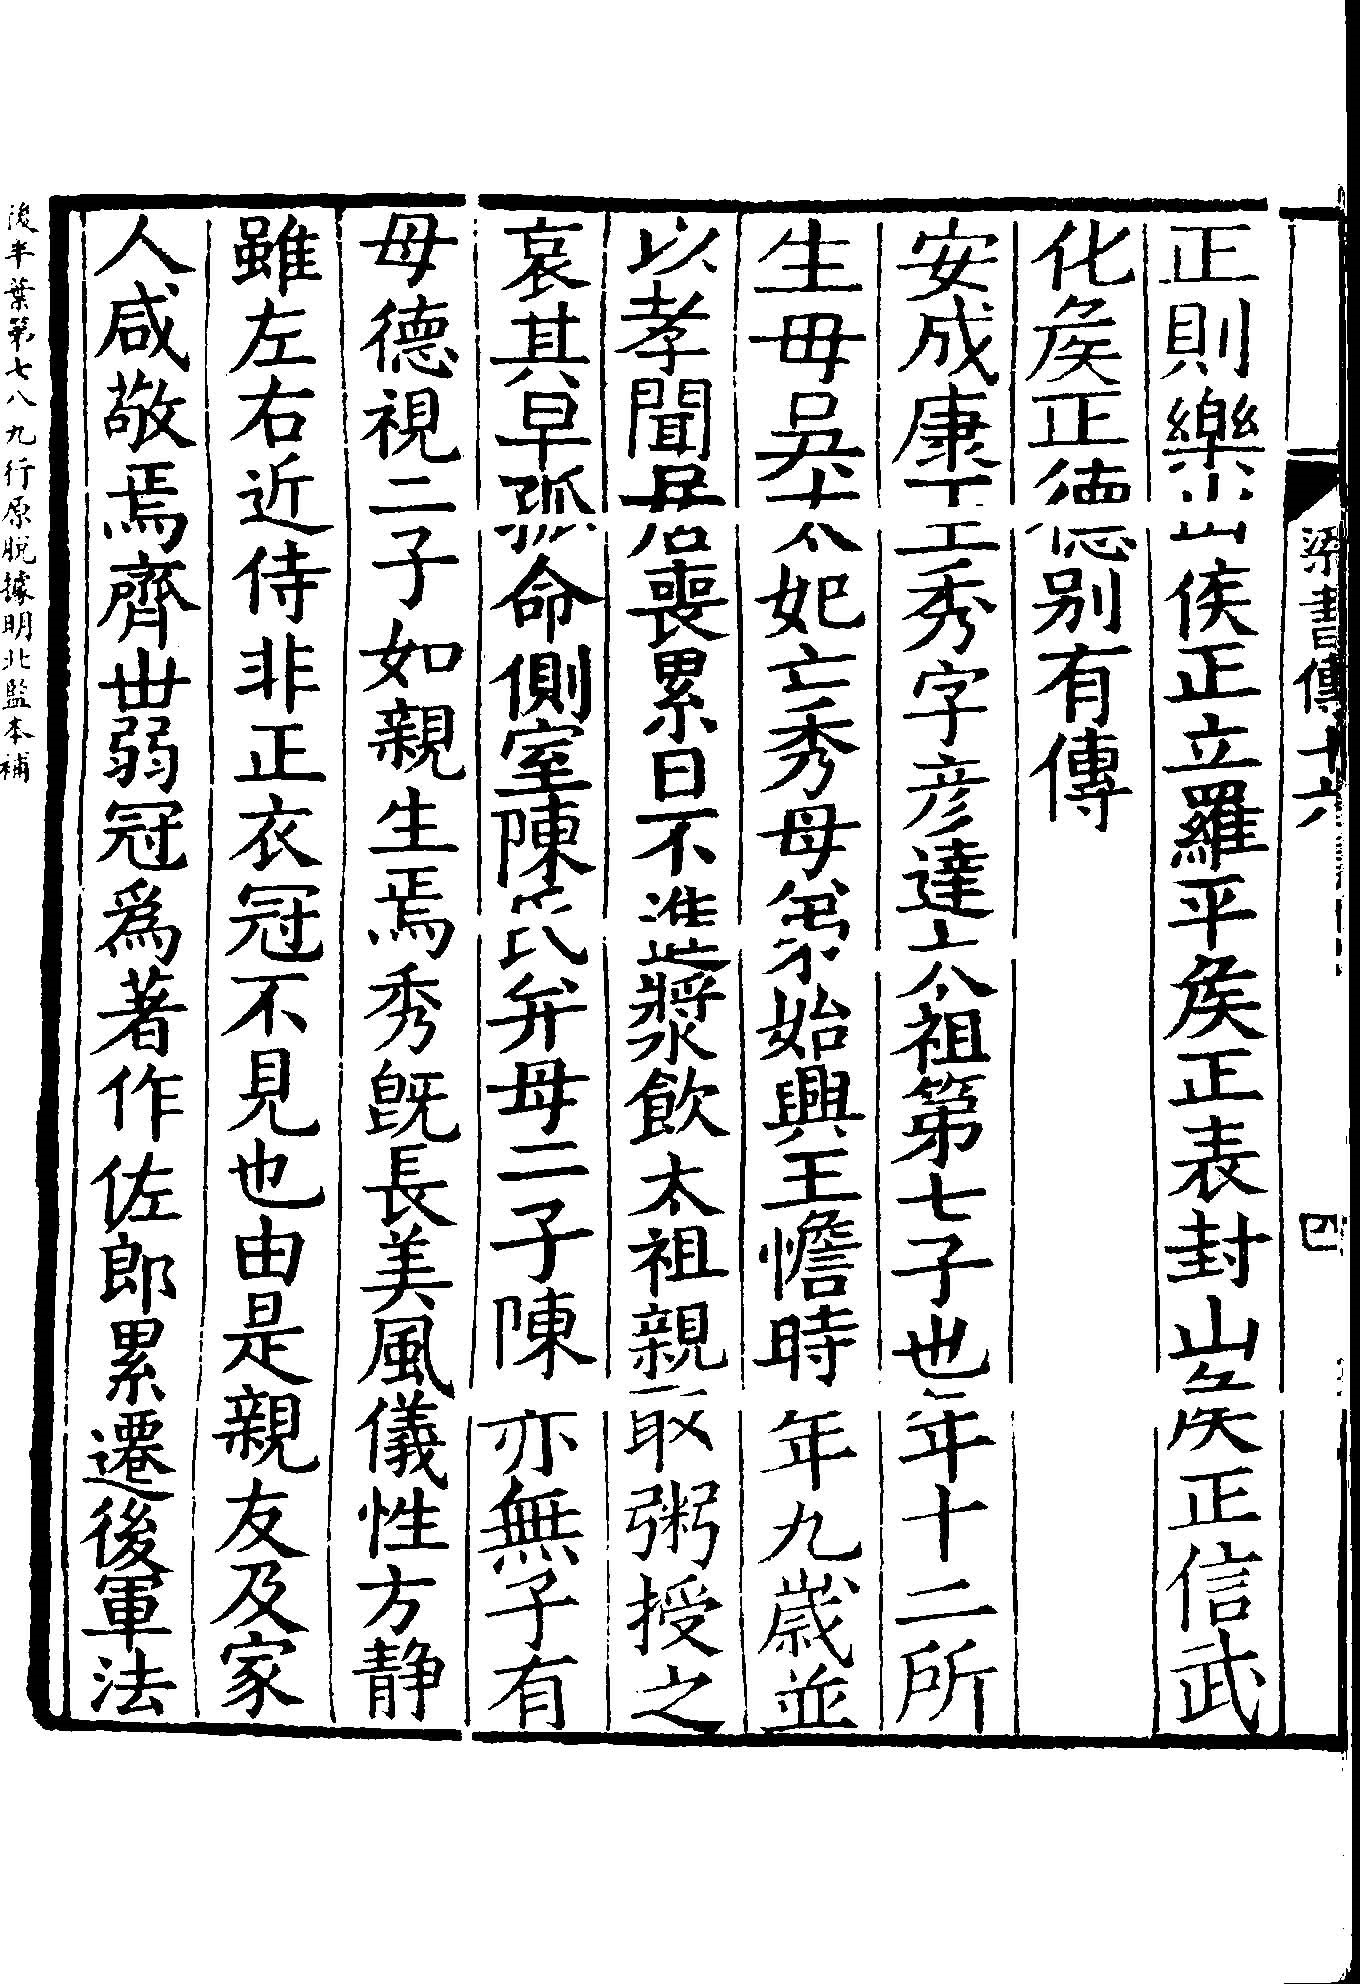 梁書傳十六
四
正則樂山侯正立羅平矦正表封山矦正信武
化矦正德別有傳
安成康王秀字彥達太祖第七子也年十二所
生母吳太妃亡秀母弟始興王憺時年九歲並
以孝聞居喪累日不進漿飲太祖親取粥授之
哀其早孤命側室陳氏并母二子陳亦無子有
母德視二子如親生焉秀旣長美風儀性方静
雖左右近侍非正衣冠不見也由是親友及家
人咸敬焉齊丗弱冠爲著作佐郎累遷後軍法
後半葉第七八九行原脫據明北監本補